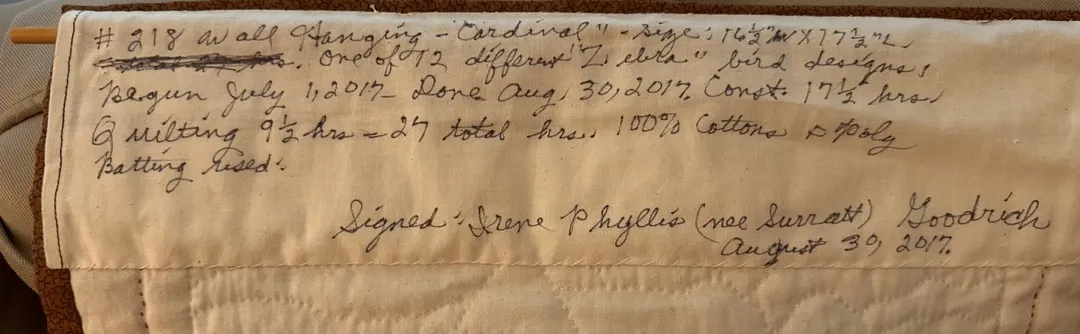 # 218 Wall Hanging - Cardinal" - Size: 16½"W X 17½"L.
total 27 hrs. One of 12 different "Zebra" bird designs.
Begun July 1, 2017 - Done Aug. 30, 2017. Const. 17½ hrs.
Quilting 9½ hrs = 27 total hrs. 100% Cottons & Poly
Batting used.
Signed: Irene Phyllis (nee Surratt) Goodrich
August 30, 2017.